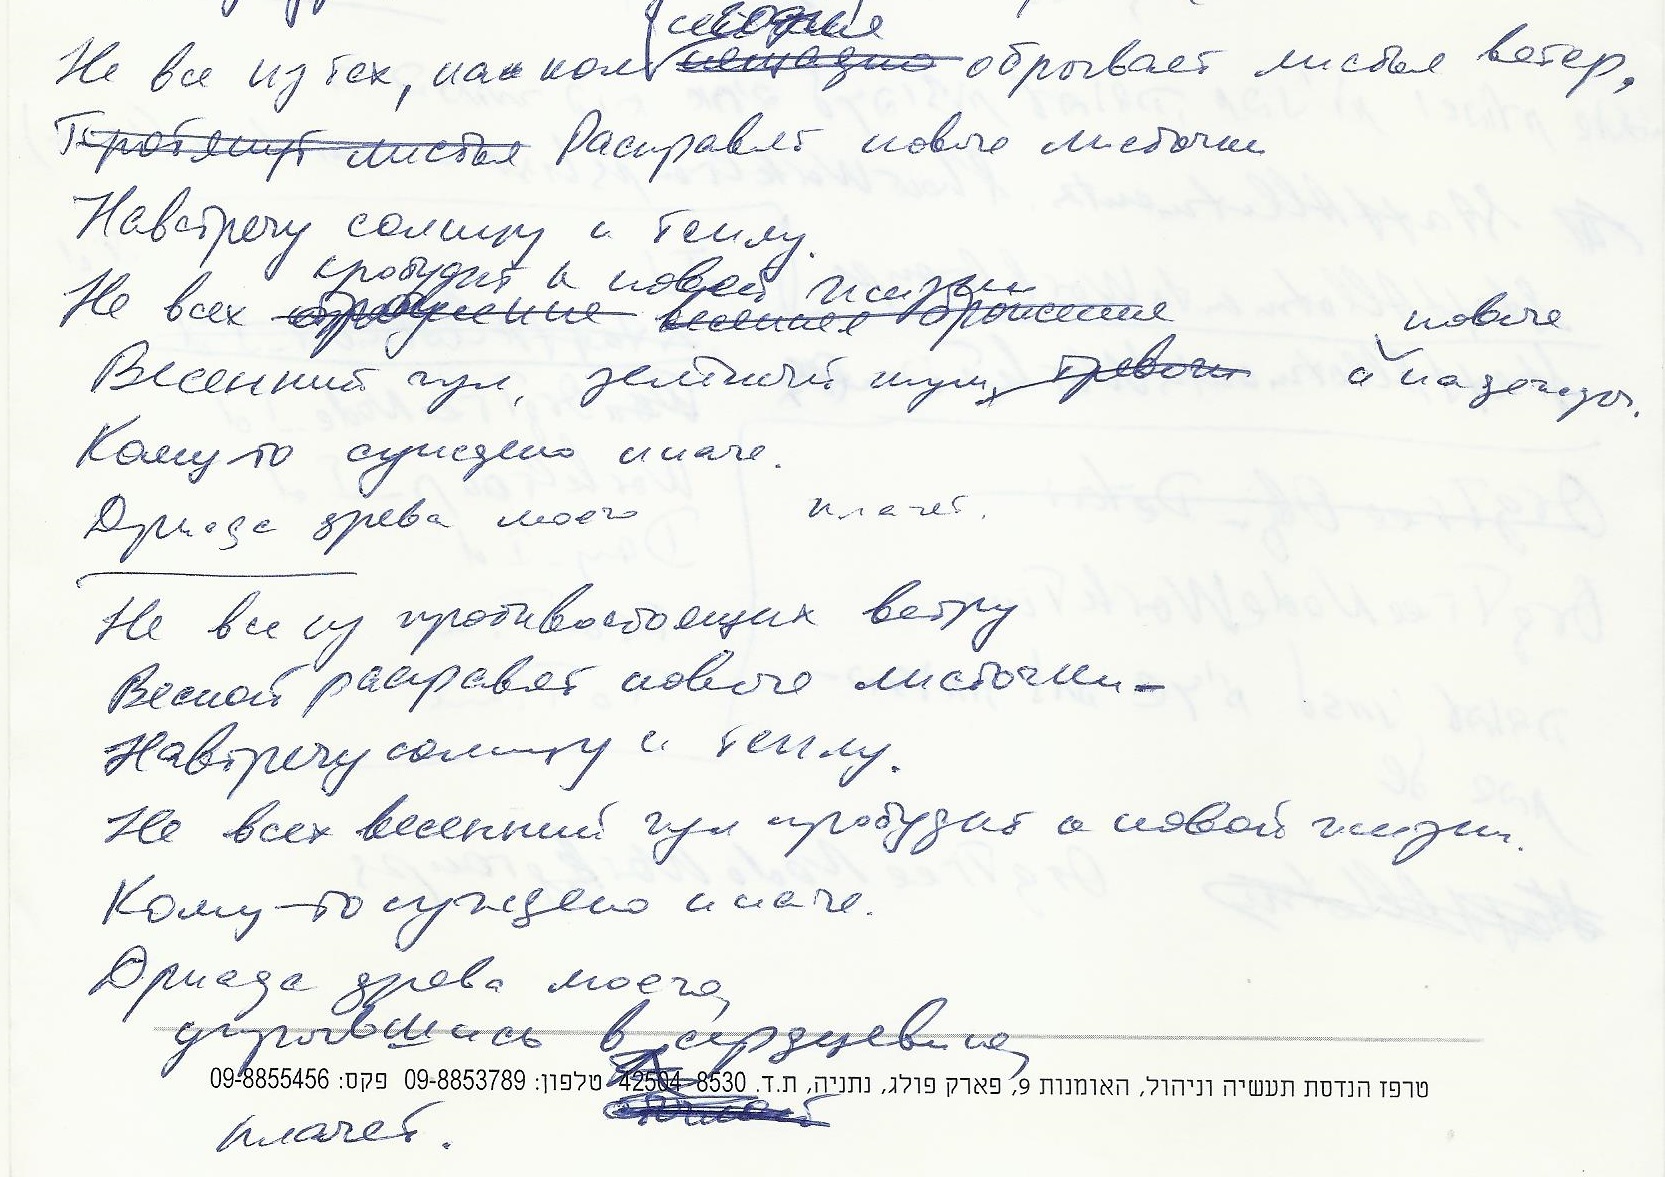 сегодня
Не все из тех, на ком нещадно обрывает листья ветер,
Протянут листья Расправят новые листочки
Навстречу солнцу и теплу.
пробудит к новой жизни
Не всех весеннее брожение
новые
Весенний гул, зелёный шум, тревоги и надежды.
Кому-то суждено иначе.
Дриада древа моего плачет.
Не все из противостоящих ветру
Весной расправят новые листочки -
Навстречу солнцу и теплу.
Не всех весенний гул пробудит к новой жизни.
Кому-то суждено иначе.
Дриада древа моего,
укрывшись в сердцевине,
טרפז הנדסת תעשיה וניהול, האומנות 9, פארק פולג, נתניה, ת.ד. 8530 42504 טלפון: 09-8853789 פקס: 09-8855456
плачет.